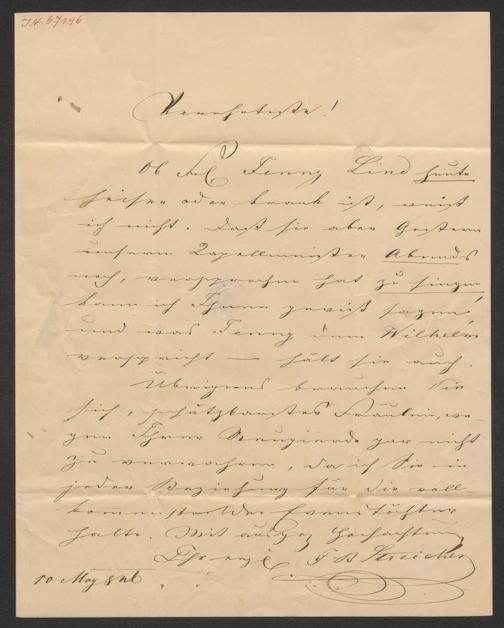 J.N. 67196
Verehrteste!
Ob Frl Jenny Lind heute
heiser oder krank ist, weiß
ich nicht. Daß sie aber Gestern
unserm Kapellmeister Abends
noch, versprochen hat zu singen,
kann ich Ihnen gewiß sagen,
und was Jenny dem Wilhelm
verspricht — hält sie auch.
Übrigens brauchen Sie
sich, schätzbarstes Fräulein, we-
gen Ihrer Neugierde gar nicht
zu verwahren, da ich Sie in
jeder Beziehung für die voll-
kommenste der Evenstöchter
halte. Mit ausgez Hochachtung
Ihr erg J B Streicher
10 May 846